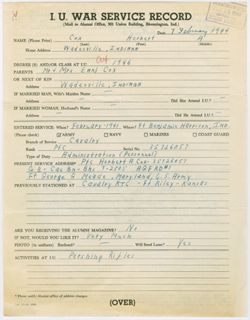 I. U. WAR SERVICE RECORD
(Mail to Alumni Office, 303 Union Building, Bloomington, Ind.)
Date 7 February 1944
NAME (Please Print) Cox Herbert A
Home Address Wadesville, Indiana
DEGREE (S) AND/OR CLASS AT I. U. 1946
PARENTS Mr & Mrs Earl Cox
OR NEXT OF KIN
Address Wadesville, Indiana
IF MARRIED MAN, Wife's Maiden Name Did She Attend I. U.?
IF MARRIED WOMAN, Husband's Name Did He Attend I. U.?
ENTERED SERVICE: When? February 1943 Where? Ft Benjamin Harrison, Ind.
(Please Check) ARMY NAVY MARINES COAST GUARD
Branch of Service Cavalry
Rank Pfc Serial No.
Type of Duties Administration (Personnel)
PRESENT SERVICE ADDRESS Pfc Herbert A Cox
Ft George G Meade, Maryland, U.S. Army
PREVIOUSLY STATIONED AT Cavalry RTC - Ft Riley - Kansas
ARE YOU RECEIVING THE ALUMNI MAGAZINE? No
IF NOT, WOULD YOU LIKE IT? Very Much
PHOTO (in uniform) Enclosed? Will Send Later? Yes
ACTIVITIES AT I. U. Pershing Rifles
* Please notify Alumni office of address changes.
(OVER)